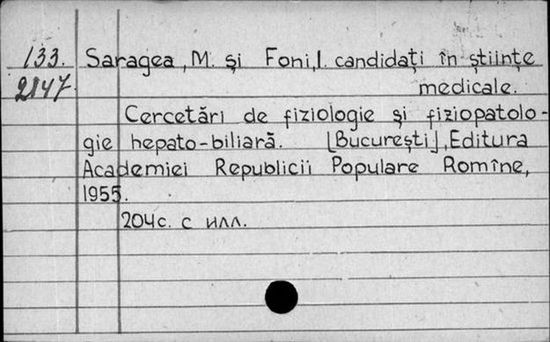 133. Saragea, M. și Foni, I. candidați în științe
2147. medicale.
Cercetări de fiziologie și fiziopatolo-
gie hepato-biliară. [București], Editura
Academiei Republicii Populare Romîne,
1955.
204c. с илл.